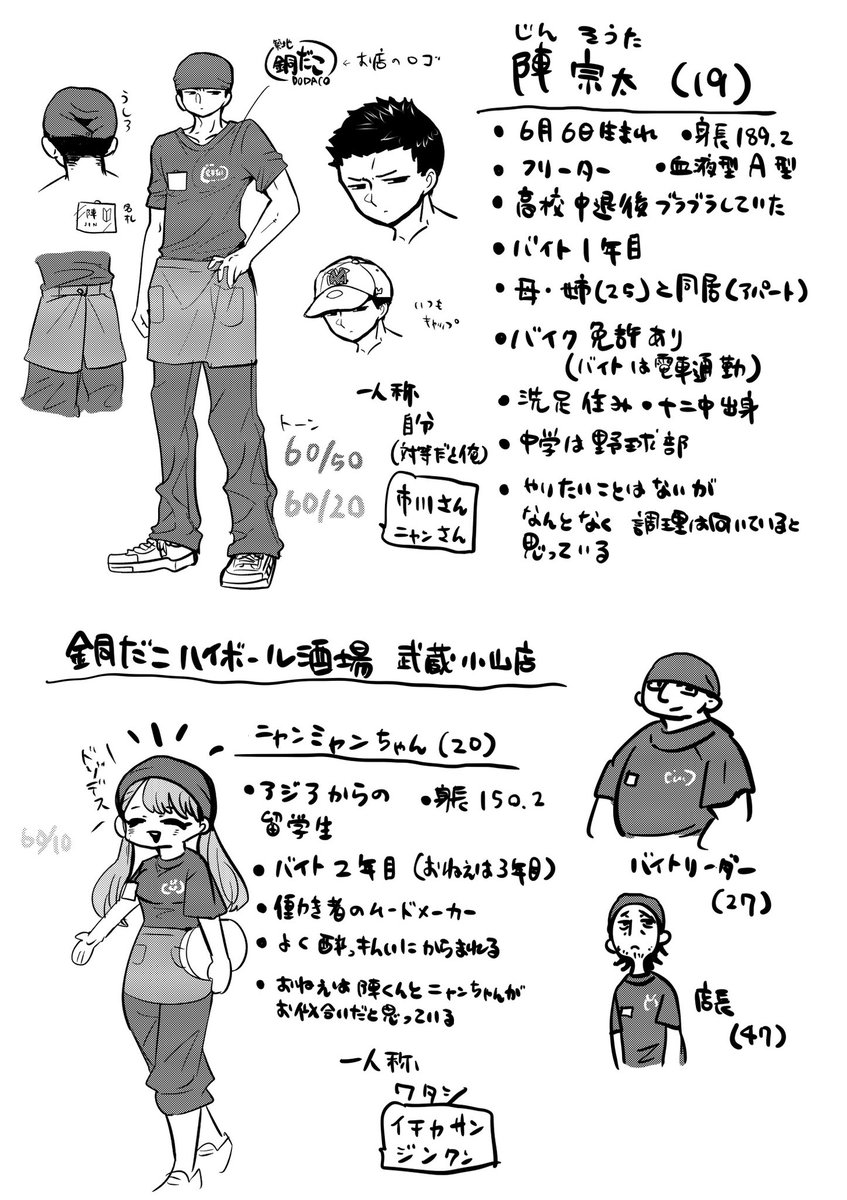 じん そうた
陣 宗太 (19)
・6月6日生まれ ・身長189.2
・フリーター ・血液型A型
・高校中退後ブラブラしていた
・バイト1年目
・母・姉(25)と同居(アパート)
・バイク免許あり
(バイトは電車通勤)
・洗足住み・十二中出身
・中学は野球部
・やりたいことはないが
なんとなく 調理は向いていると
思っている
銅だこ
DODACO
←お店のロゴ
うしろ
陣
JIN
名札
いつも
キャップ
トーン
60/50
60/20
一人称
自分
(対等だと俺)
市川さん
ニャンさん
銅だこハイボール酒場 武蔵小山店
ニャンミャンちゃん(20)
・アジアからの
留学生
・身長150.2
・バイト2年目(おねえは3年目)
・働き者のムードメーカー
・よく酔っぱらいにからまれる
・おねえは陣くんとニャンちゃんが
お似合いだと思っている
ドゾー
デス
60/10
一人称、
ワタシ
イチカサン
ジンクン
バイトリーダー
(27)
店長
(47)